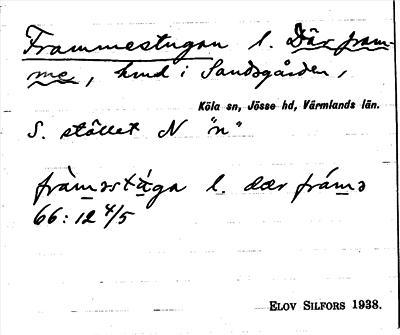 Frammestugan l. Där fram-
me, hmd i Sandsgården,
Köla sn, Jösse hd, Värmlands län.
S. stället N "n"
främəstȧ́ga l. dær frámə
66:12 4/5
ELOV SILFORS 1938.